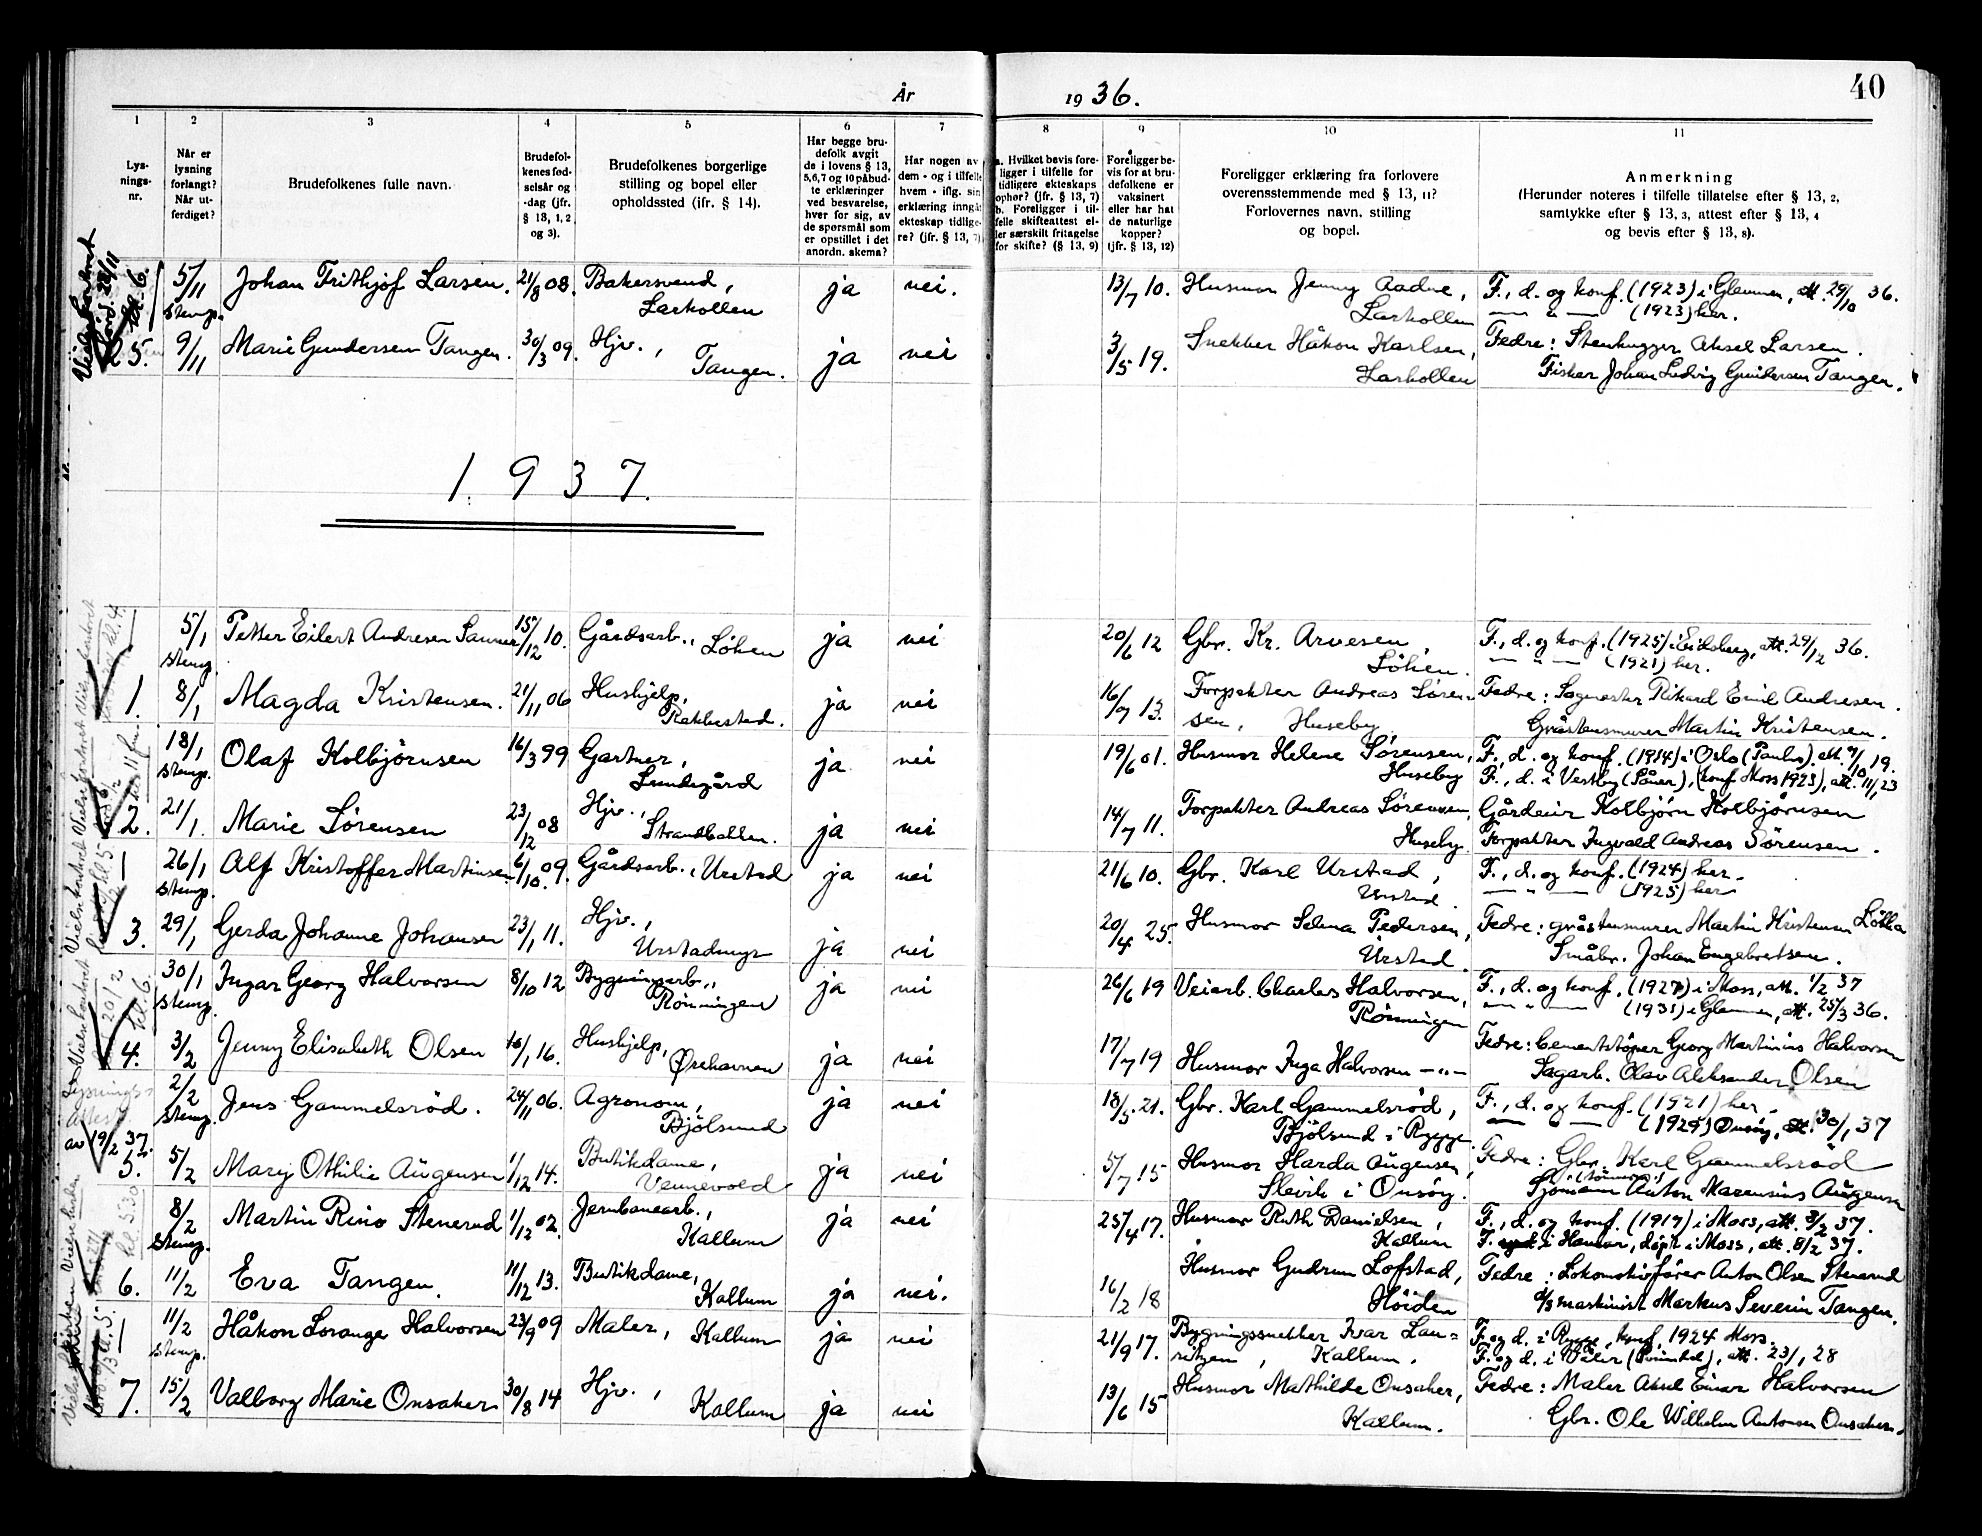 40
År 1936.
1 2 3 4 5 6 7 8 9 10 11
Lys-
nings-
nr.
Når er
lysning
forlangt?
Når ut-
ferdiget?
Brudefolkenes fulle navn.
Brudefol-
kenes fød-
selsår og
-dag (jfr.
§ 13, 1, 2
og 3).
Brudefolkenes borgerlige
stilling og bopel eller
opholdssted (jfr. § 14).
Har begge bru-
defolk avgit
de i lovens § 13,
5,6,7 og 10 påbud-
te erklæringer
ved besvarelse,
hver for sig, av
de spørsmål som
er opstillet i det
anordn. skema?
Har nogen av
dem - og i tilfelle
hvem - iflg. sin
erklæring inngå
ekteskap tidlige-
re? (jfr. § 13, 7)
a. Hvilket bevis fore-
ligger i tilfelle for
tidligere ekteskaps
ophør? (jfr. § 13, 7)
b. Foreligger i til-
felle skifteattest el-
ler særskilt fritagelse
for skifte? (§ 13, 9)
Foreligger be-
vis for at bru-
defolkene er
vaksinert
eller har hat
de naturlige
kopper?
(jfr. § 13, 12)
Foreligger erklæring fra forlovere
overensstemmende med § 13, 11?
Forlovernes navn, stilling
og bopel.
Anmerkning
(Herunder noteres i tilfelle tillatelse efter § 13, 2,
samtykke efter § 13, 3, attest efter § 13, 4
og bevis efter § 13, 8).
5/11 Johan Frithjof Larsen. 21/8 08. Bakersvend, ja nei. 13/7 10. Husmor Jenny Aadne, F., d. og konf. (1923) i Glemmen, att. 29/10 36.
stemp. Larkollen Larkollen — " — (1923) her.
25. 9/11 Marie Gundersen Tangen. 30/3 09. Hjv., ja nei 3/5 19. Snekker Håkon Karlsen, Fedre: Stenhugger Aksel Larsen.
Tangen. Larkollen Fisker Johan Ludvig Gundersen Tangen.
1937.
5/1 Petter Eilert Andresen 15/12 10. Gårdsarb., Löken ja nei 20/6 12 Gbr. Kr. Arvesen, F., d. og konf. (1925) i Eidsberg, att. 29/12 36.
stemp. Löken. — " — (1921) her.
1. 8/1 Magda Kristensen. 21/11 06 Hushjelp, ja nei 16/7 13. Forpakter Andreas Sören- Fedre: Rikard Emil Andresen.
Rakkestad. sen, Huseby Gråstensmurer Martin Kristensen.
18/1 Olaf Kolbjörnsen 16/3 99 Gartner, ja nei 19/6 01. Husmor Helene Sörensen, F., d. og konf. (1914) i Oslo (Paulus). att. 9/10 19.
stemp. Sundegård Huseby F., d. i Vestby (Såner), (konf Moss 1923), att. 11/1 23
2. 21/1. Marie Sörensen 23/12 08 Hjv., ja nei 14/7 11. Forpakter Andreas Sörensen, Gårdeier Kolbjörn Kolbjörnsen
Strandballen. Huseby. Forpakter Ingvald Andreas Sörensen.
26/1 Alf Kristoffer Martinsen 6/10 09. Gårdsarb., Urstad ja nei 21/6 10. Gbr. Karl Urstad, F., d. og konf. (1924) her.
stemp. Urstad. — " — (1925) her
3. 29/1 Gerda Johanne Johansen 23/1 11. Hjv., ja nei 20/4 25. Husmor Selma Pedersen, Fedre: gråstensmurer Martin Kristensen
Urstadmyr Urstad. Småbr. Johan Engebretsen.
30/1 Ingar Georg Halvorsen 8/10 12 Bygningsarb., ja nei 26/6 19 Veiarb. Charles Halvorsen, F., d. og konf. (1927) i Moss, att. 1/2 37
stemp. Rönningen Rönningen — " — (1931) i Glemmen, att. 25/3 36.
4. 3/2 Jenny Elisabeth Olsen 16/1 16. Hushjelp, ja nei 17/7 19 Husmor Inga Halvorsen — " — Fedre: Cementstöper Georg Martinius Halvorsen
Örehavnen Sagarb. Olav Aleksander Olsen
2/2 Jens Gammelsröd. 24/11 06. Agronom, ja nei 18/5 21. Gbr. Karl Gammelsröd, F., d. og konf. (1921) her.
stemp. Björlsund Björlsund i Rygge — " — (1929) Onsöy, att. 30/1 37
av 19/2 37.
5. 5/2 Mary Othilie Augensen 1/12 14. Butikdame, ja nei 5/7 15 Husmor Harda Augensen, Fedre: Gbr. Karl Gammelsröd
Vennevold Slevik i Onsöy. Sjömann Anton Marensius Augensen
8/2 Martin Rino Stenerud 1/12 02. Jernbanearb., ja nei 25/4 17. Husmor Ruth Danielsen, F., d. og konf. (1917) i Moss, att. 3/2 37.
stemp. Kallum Kallum F. i Hamar, döpt i Moss, att. 8/2 37.
6. 11/2 Eva Tangen. 11/12 13. Butikdame, ja nei. 16/2 18 Husmor Gudrun Lofstad, Fedre: Lokomotivförer Anton Olsen Stenerud
Kallum Höiden maskinist Markus Severin Tangen.
11/2 Håkon Lorange Halvorsen 23/9 09 Maler, Kallum ja nei 21/9 17. Bygningssnekker Ivar Lau- F. og d. i Rygge, konf. 1924 Moss.
stemp. ritzen, Kallum. F. og d. i Våler, att. 23/1 28
7. 15/2 Valborg Marie Onsaker 30/8 14 Hjv., ja nei 13/6 15 Husmor Mathilde Onsaker, Fedre: Maler Aksel Einar Halvorsen
Kallum Kallum. Gbr. Ole Wilhelm Antonsen Onsaker.